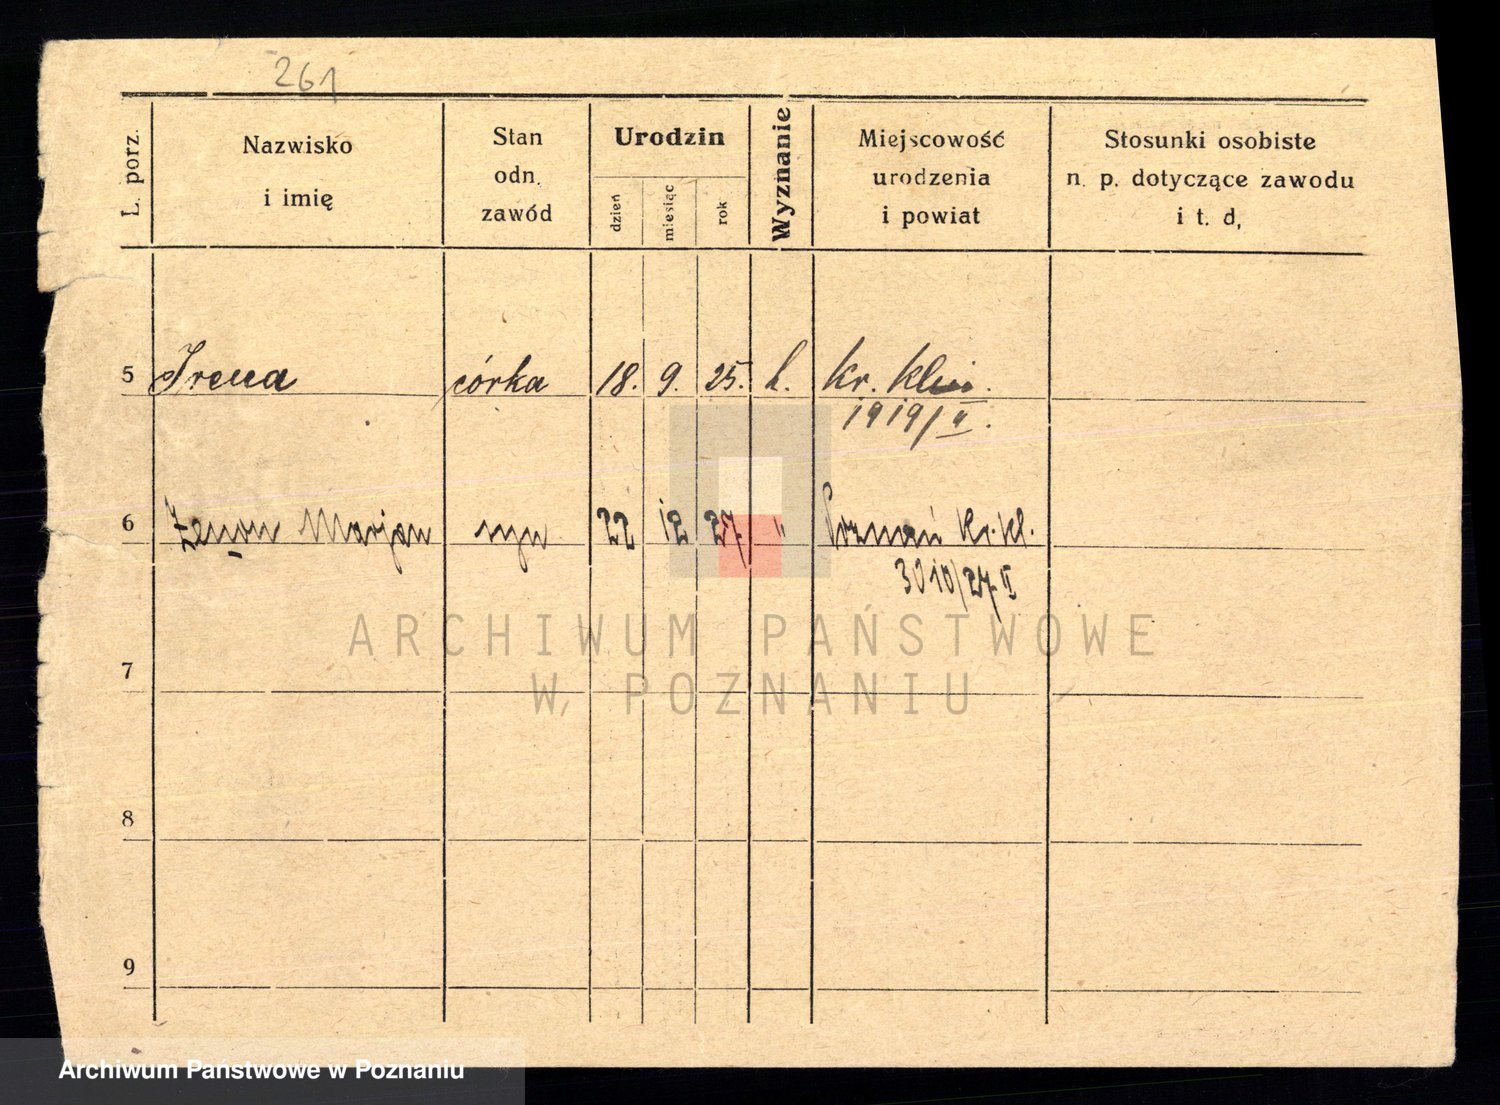 261
L. porz.
Nazwisko
i imię
Stan
odn.
zawód
Urodzin
dzień
miesiąc
rok
Wyznanie
Miejscowość
urodzenia
i powiat
Stosunki osobiste
n. p. dotyczące zawodu
i t. d,
5 Irena córka 18. 9. 25. k. kr. klin.
1919/II.
6 Zenon Marjan syn 22 12 27. " Poznań kr. kl.
3010/27 II
7
8
9
ARCHIWUM PAŃSTWOWE
W POZNANIU
Archiwum Państwowe w Poznaniu